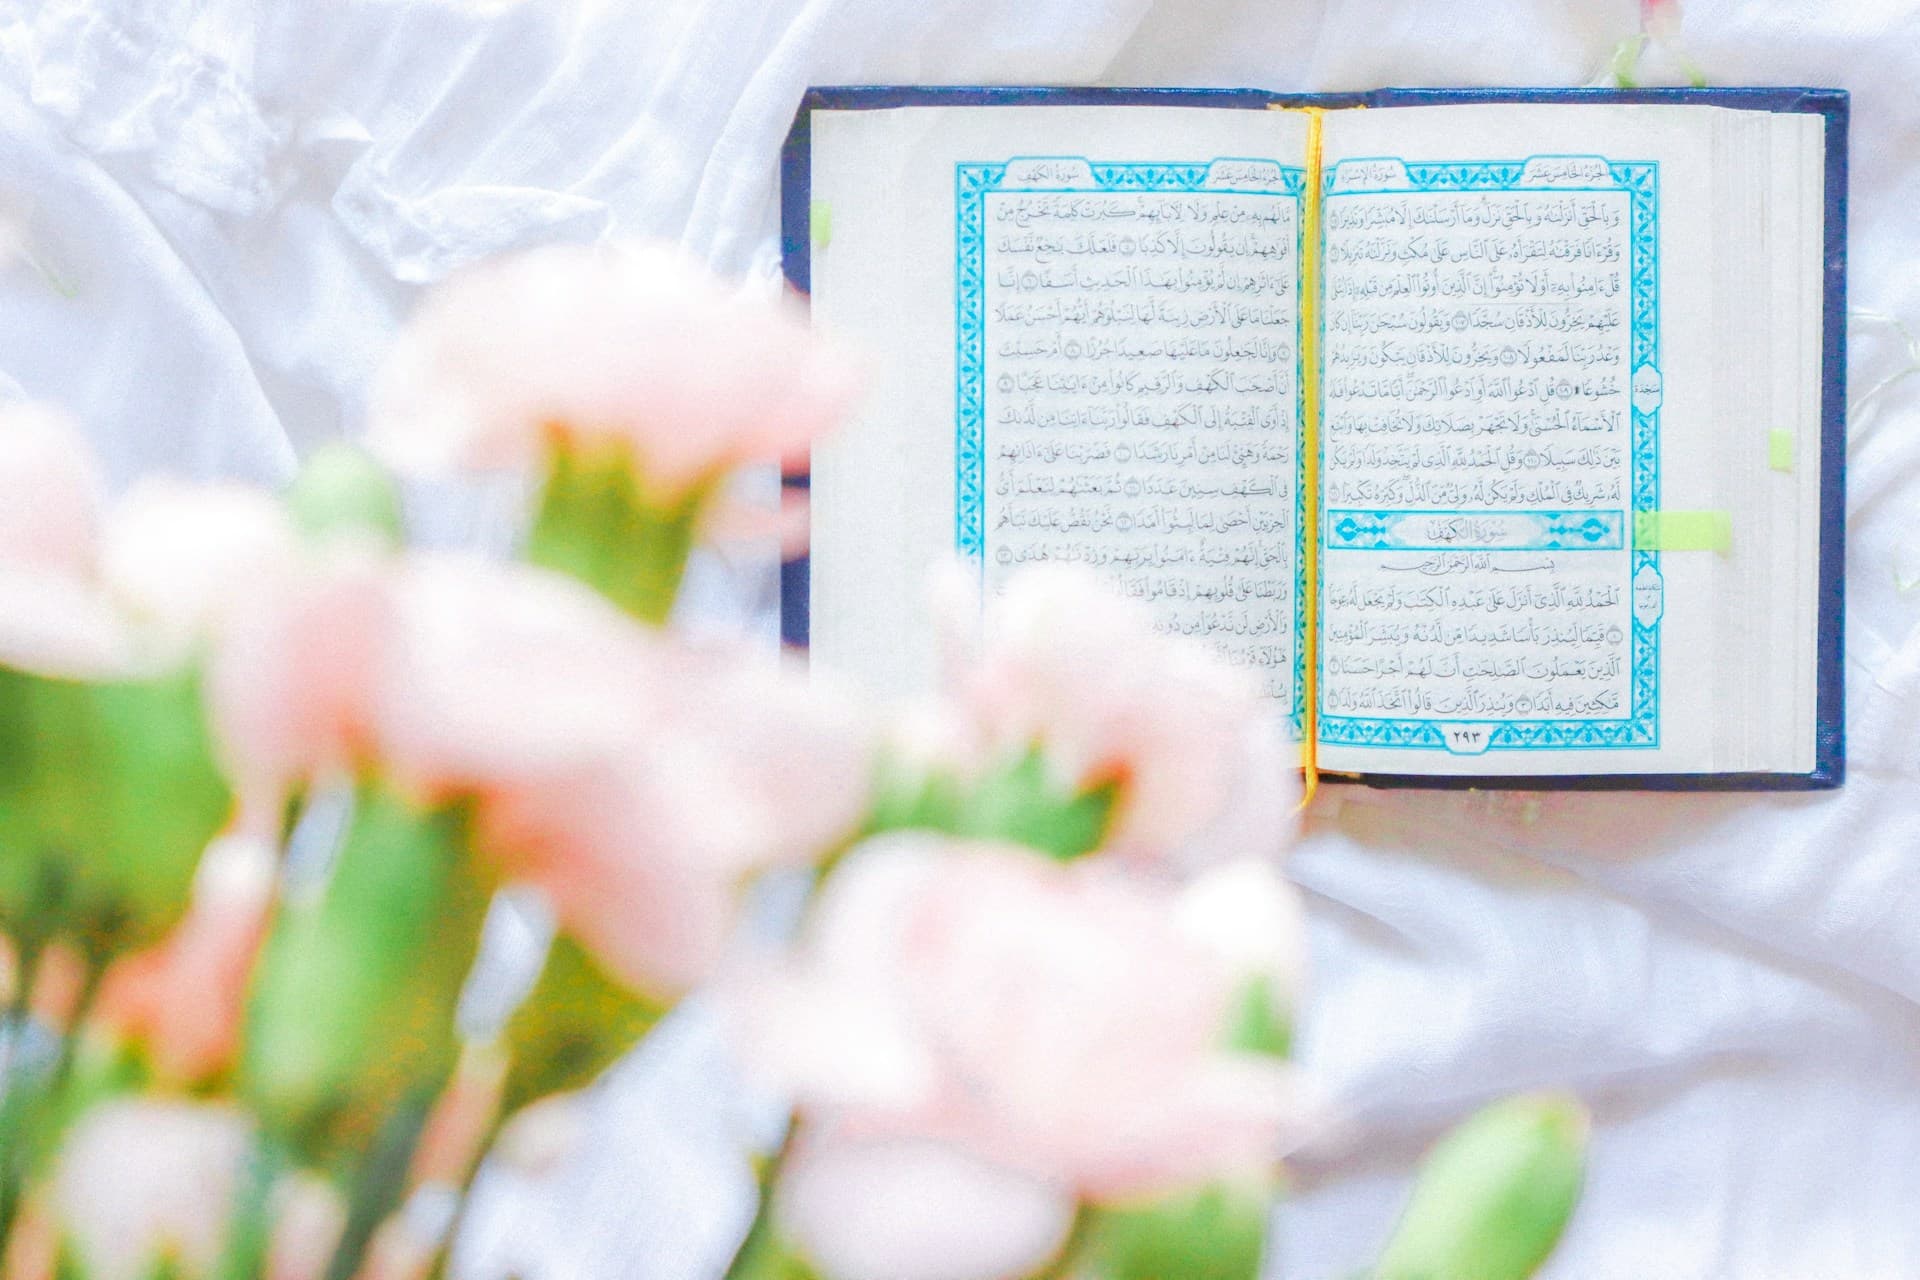 الجزء الخامس عشر
سورة الإسراء
وَبِٱلْحَقِّ أَنزَلْنَٰهُ وَبِٱلْحَقِّ نَزَلَ ۗ وَمَآ أَرْسَلْنَٰكَ إِلَّا مُبَشِّرًا وَنَذِيرًا ١٠٥
وَقُرْءَانًا فَرَقْنَٰهُ لِتَقْرَأَهُۥ عَلَى ٱلنَّاسِ عَلَىٰ مُكْثٍ وَنَزَّلْنَٰهُ تَنزِيلًا ١٠٦
قُلْ ءَامِنُوا۟ بِهِۦٓ أَوْ لَا تُؤْمِنُوٓا۟ ۚ إِنَّ ٱلَّذِينَ أُوتُوا۟ ٱلْعِلْمَ مِن قَبْلِهِۦٓ إِذَا يُتْلَىٰ
عَلَيْهِمْ يَخِرُّونَ لِلْأَذْقَانِ سُجَّدًا ١٠٧ وَيَقُولُونَ سُبْحَٰنَ رَبِّنَآ إِن كَانَ
وَعْدُ رَبِّنَا لَمَفْعُولًا ١٠٨ وَيَخِرُّونَ لِلْأَذْقَانِ يَبْكُونَ وَيَزِيدُهُمْ
خُشُوعًا ۩ ١٠٩ قُلِ ٱدْعُوا۟ ٱللَّهَ أَوِ ٱدْعُوا۟ ٱلرَّحْمَٰنَ ۖ أَيًّا مَّا تَدْعُوا۟ فَلَهُ
ٱلْأَسْمَآءُ ٱلْحُسْنَىٰ ۚ وَلَا تَجْهَرْ بِصَلَاتِكَ وَلَا تُخَافِتْ بِهَا وَٱبْتَغِ
بَيْنَ ذَٰلِكَ سَبِيلًا ١١٠ وَقُلِ ٱلْحَمْدُ لِلَّهِ ٱلَّذِى لَمْ يَتَّخِذْ وَلَدًا وَلَمْ يَكُن
لَّهُۥ شَرِيكٌ فِى ٱلْمُلْكِ وَلَمْ يَكُن لَّهُۥ وَلِىٌّ مِّنَ ٱلذُّلِّ ۖ وَكَبِّرْهُ تَكْبِيرًۢا ١١١
سورة الكهف
بِسْمِ ٱللَّهِ ٱلرَّحْمَٰنِ ٱلرَّحِيمِ
ٱلْحَمْدُ لِلَّهِ ٱلَّذِىٓ أَنزَلَ عَلَىٰ عَبْدِهِ ٱلْكِتَٰبَ وَلَمْ يَجْعَل لَّهُۥ عِوَجَا
١ قَيِّمًا لِّيُنذِرَ بَأْسًا شَدِيدًا مِّن لَّدُنْهُ وَيُبَشِّرَ ٱلْمُؤْمِنِينَ
ٱلَّذِينَ يَعْمَلُونَ ٱلصَّٰلِحَٰتِ أَنَّ لَهُمْ أَجْرًا حَسَنًا ٢
مَّٰكِثِينَ فِيهِ أَبَدًا ٣ وَيُنذِرَ ٱلَّذِينَ قَالُوا۟ ٱتَّخَذَ ٱللَّهُ وَلَدًا ٤
سجدة
٢٩٣
الجزء الخامس عشر
سورة الكهف
مَّا لَهُم بِهِۦ مِنْ عِلْمٍ وَلَا لِءَابَآئِهِمْ ۚ كَبُرَتْ كَلِمَةً تَخْرُجُ مِنْ
أَفْوَٰهِهِمْ ۚ إِن يَقُولُونَ إِلَّا كَذِبًا ٥ فَلَعَلَّكَ بَٰخِعٌ نَّفْسَكَ
عَلَىٰٓ ءَاثَٰرِهِمْ إِن لَّمْ يُؤْمِنُوا۟ بِهَٰذَا ٱلْحَدِيثِ أَسَفًا ٦ إِنَّا
جَعَلْنَا مَا عَلَى ٱلْأَرْضِ زِينَةً لَّهَا لِنَبْلُوَهُمْ أَيُّهُمْ أَحْسَنُ عَمَلًا
٧ وَإِنَّا لَجَٰعِلُونَ مَا عَلَيْهَا صَعِيدًا جُرُزًا ٨ أَمْ حَسِبْتَ
أَنَّ أَصْحَٰبَ ٱلْكَهْفِ وَٱلرَّقِيمِ كَانُوا۟ مِنْ ءَايَٰتِنَا عَجَبًا ٩
إِذْ أَوَى ٱلْفِتْيَةُ إِلَى ٱلْكَهْفِ فَقَالُوا۟ رَبَّنَآ ءَاتِنَا مِن لَّدُنكَ
رَحْمَةً وَهَيِّئْ لَنَا مِنْ أَمْرِنَا رَشَدًا ١٠ فَضَرَبْنَا عَلَىٰٓ ءَاذَانِهِمْ
فِى ٱلْكَهْفِ سِنِينَ عَدَدًا ١١ ثُمَّ بَعَثْنَٰهُمْ لِنَعْلَمَ أَىُّ
ٱلْحِزْبَيْنِ أَحْصَىٰ لِمَا لَبِثُوٓا۟ أَمَدًا ١٢ نَّحْنُ نَقُصُّ عَلَيْكَ نَبَأَهُم
بِٱلْحَقِّ ۚ إِنَّهُمْ فِتْيَةٌ ءَامَنُوا۟ بِرَبِّهِمْ وَزِدْنَٰهُمْ هُدًى ١٣
وَرَبَطْنَا عَلَىٰ قُلُوبِهِمْ إِذْ قَامُوا۟ فَقَالُوا۟
وَٱلْأَرْضِ لَن نَّدْعُوَا۟ مِن دُونِهِۦٓ
هَٰٓؤُلَآءِ قَوْمُنَا